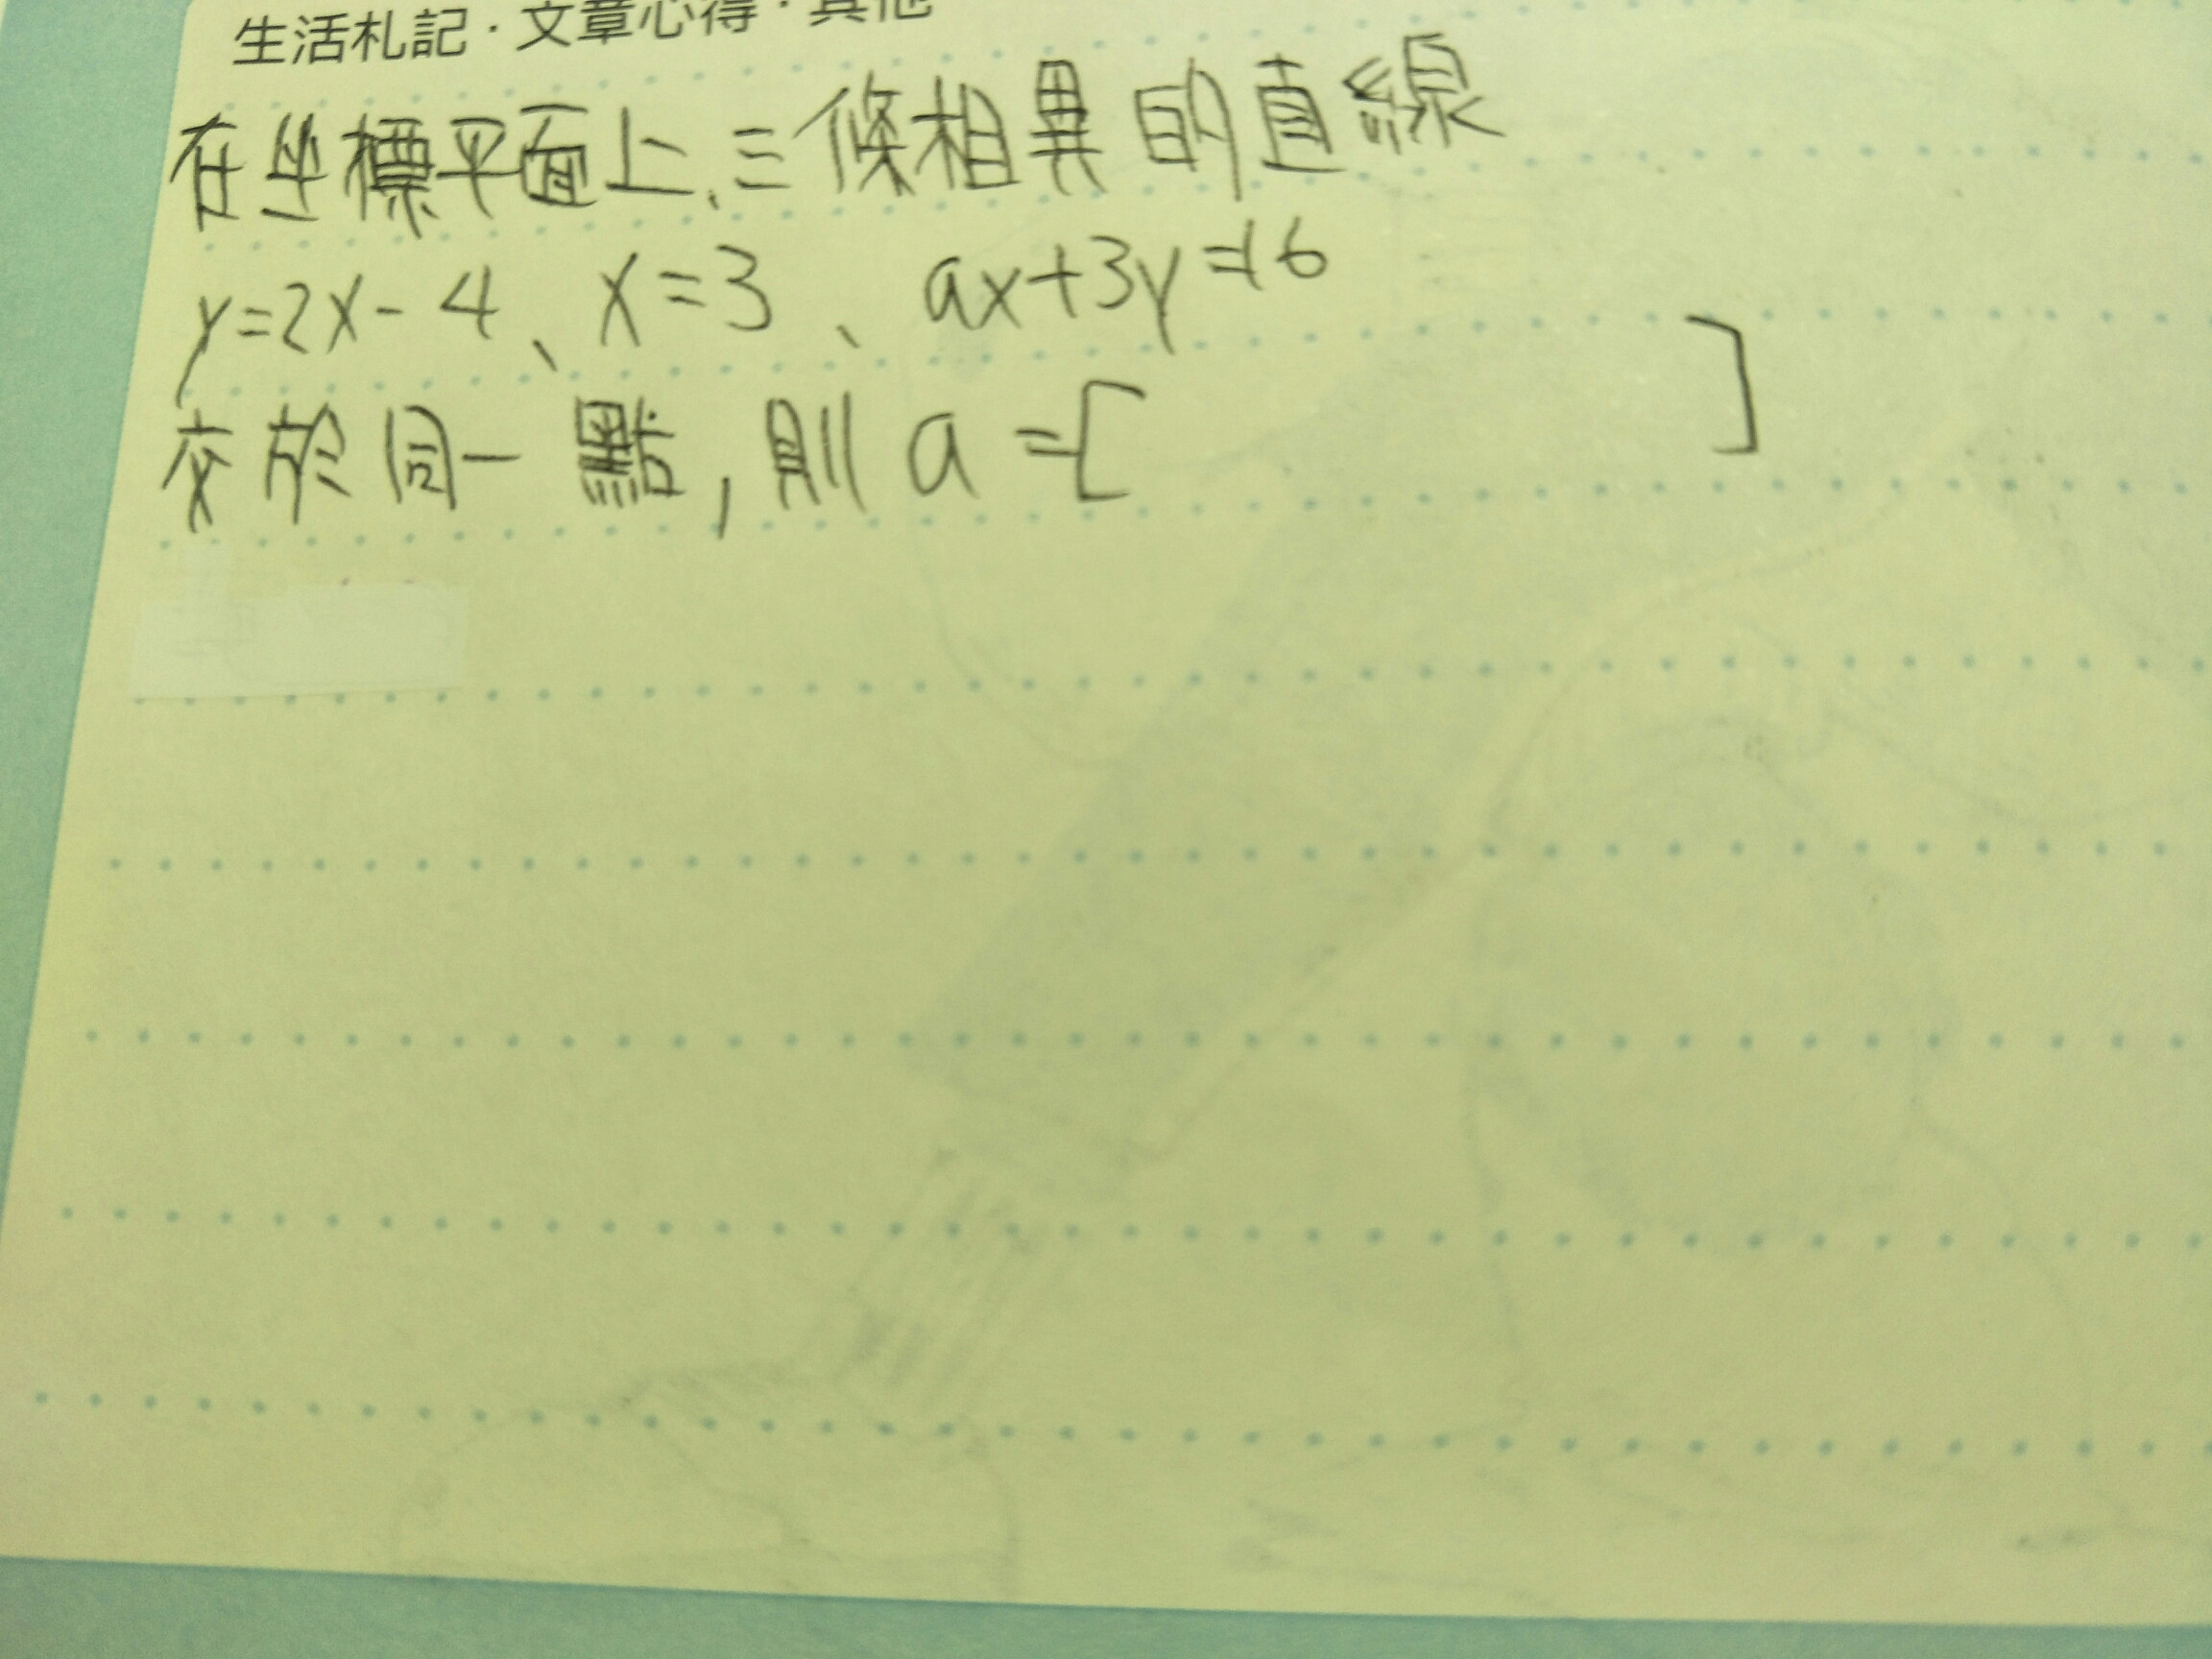 生活札記·文章心得·其他
在坐標平面上,三條相異的直線
y=2x-4、x=3、ax+3y=16
交於同一點,則a=[ ]